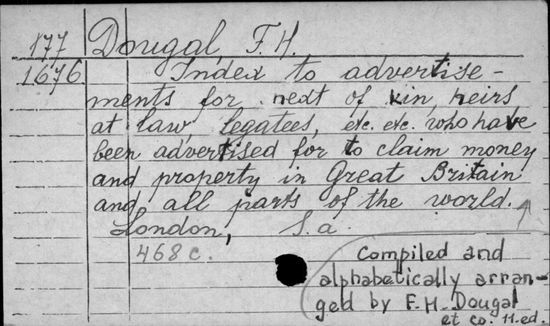 177 Dougal, F. H.
1676 Index to advertise-
ments for next of kin, heirs
at law, legatees, etc. etc. who have
been advertised for to claim money
and property in Great Britain
and all parts of the world.
London, S. a.
468 c.
Compiled and
alphabetically arran-
ged by F. H. Dougal
et co. 11. ed.